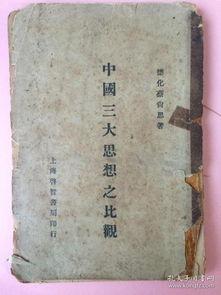 德化蔡尚思著
中國三大思想之比觀
上海啓智書局印行
孔夫子旧书网